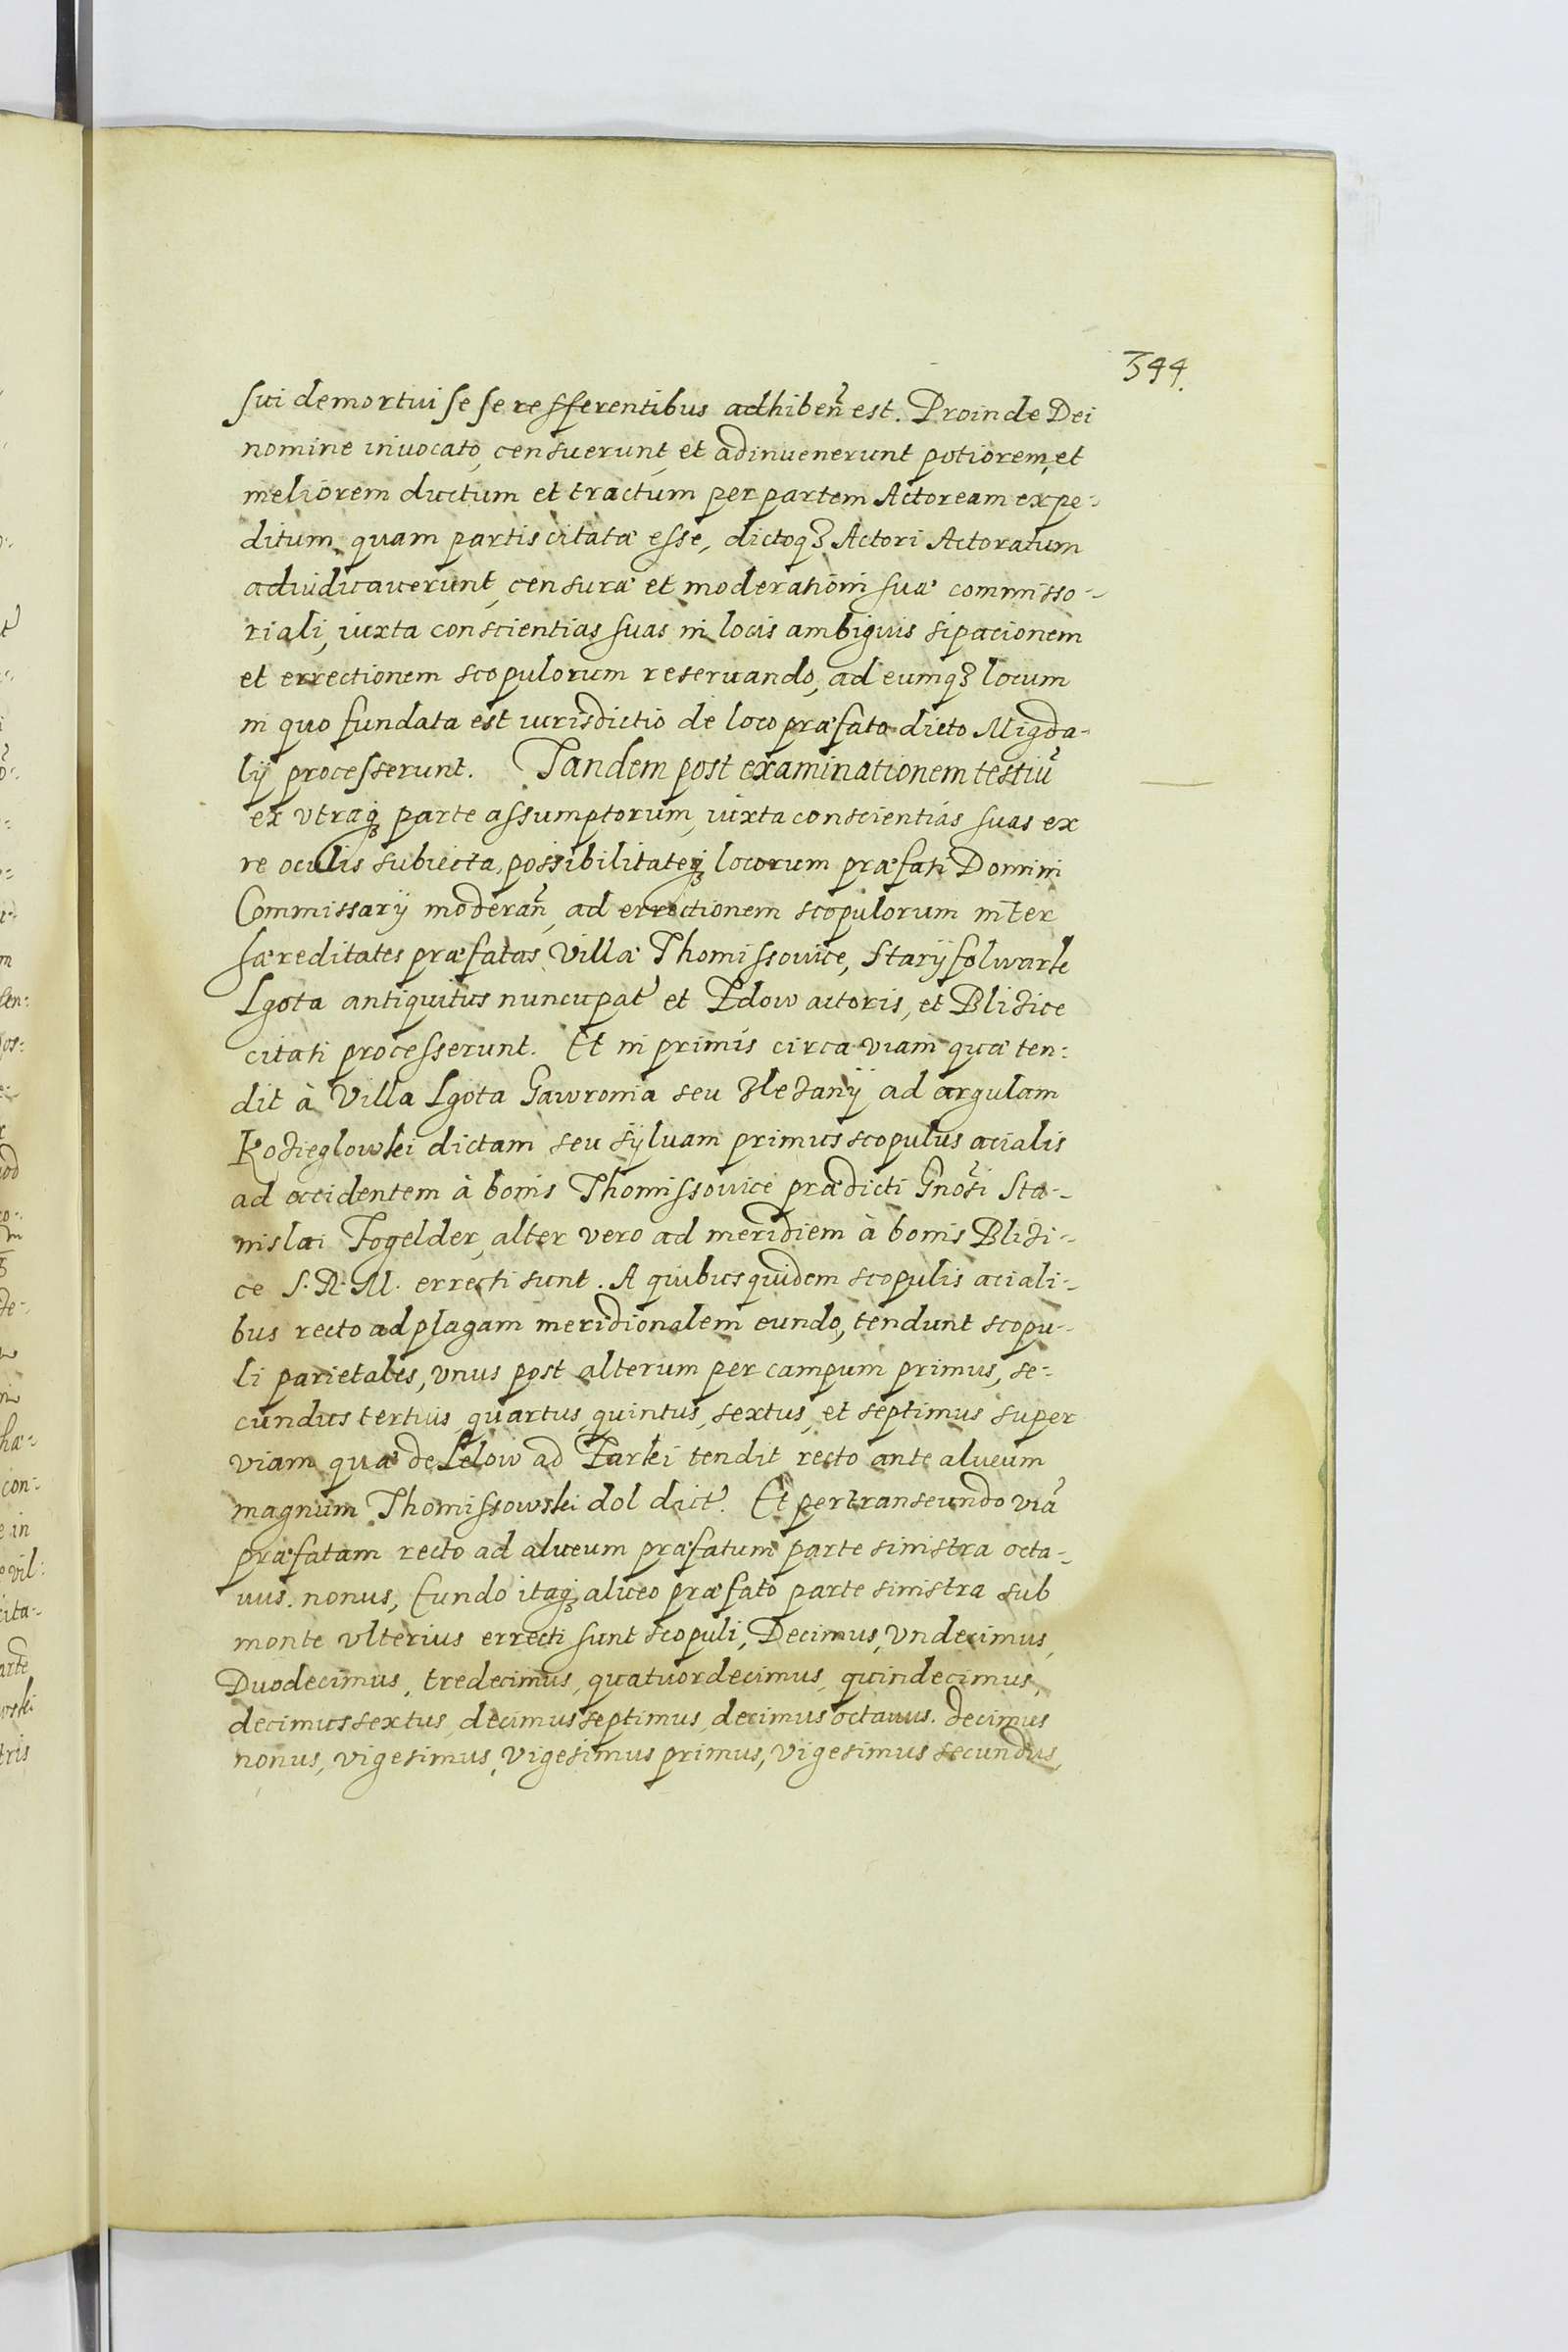 344.
sui demortui se se refferentibus adhiben̄ est. Proinde Dei
nomine invocato, censuerunt, et adinuenerunt potiorem, et
meliorem ductum et tractum per partem Actoream expe-
ditum, quam partis citatæ esse, dictoqꝫ Actori Actoratum
adiudicaverunt, censuræ et moderationi suæ commisso-
riali, iuxta conscientias suas in locis ambiguis sipacionem
et errectionem scopulorum reseruando, ad eumqꝫ locum
in quo fundata est iurisdictio de loco præfato dicto Migda-
lÿ processerunt. Tandem post examinationem testiū
ex vtraqꝫ parte assumptorum, iuxta conscientias suas ex
re oculis subiecta, possibilitateqꝫ locorum præfati Domini
Commissarÿ moderan̄, ad errectionem scopulorum inter
hæreditates præfatas Villæ Thomissowice, Starÿ folwark
Lgota antiquitus nuncupat et Zdow actoris, et Blizice
citati processerunt. Et in primis circa viam quæ ten:
dit à Villa Lgota Gawronia seu ad argulam
Kozieglowski dictam seu sÿluam primus scopulus acialis
ad occidentem à bonis Thomissowice prædicti Gnōsi Sta-
nislai Fogelder, alter vero ad meridiem à bonis Blizi-
ce S. R. M. errecti sunt. A quibus quidem scopulis aciali-
bus recto ad plagam meridionalem eundo, tendunt scopu-
li parietales, vnus post alterum per campum primus, se-
cundus tertius, quartus, quintus, sextus, et septimus super
viam quæ de Lelow ad Zarki tendit recto ante alueum
magnum Thomissowski dol dict. Et pertranseundo viā
præfatam recto ad alueum præfatum parte sinistra octa-
uus. nonus, Eundo itaqꝫ alueo præfato parte sinistra sub
monte vlterius errecti sunt scopuli, Decimus, Vndecimus,
Duodecimus, tredecimus, quatuordecimus, quindecimus,
decimussextus, decimusseptimus, decimus octauus. decimus
nonus, vigesimus, Vigesimus primus, Vigesimus secundus,